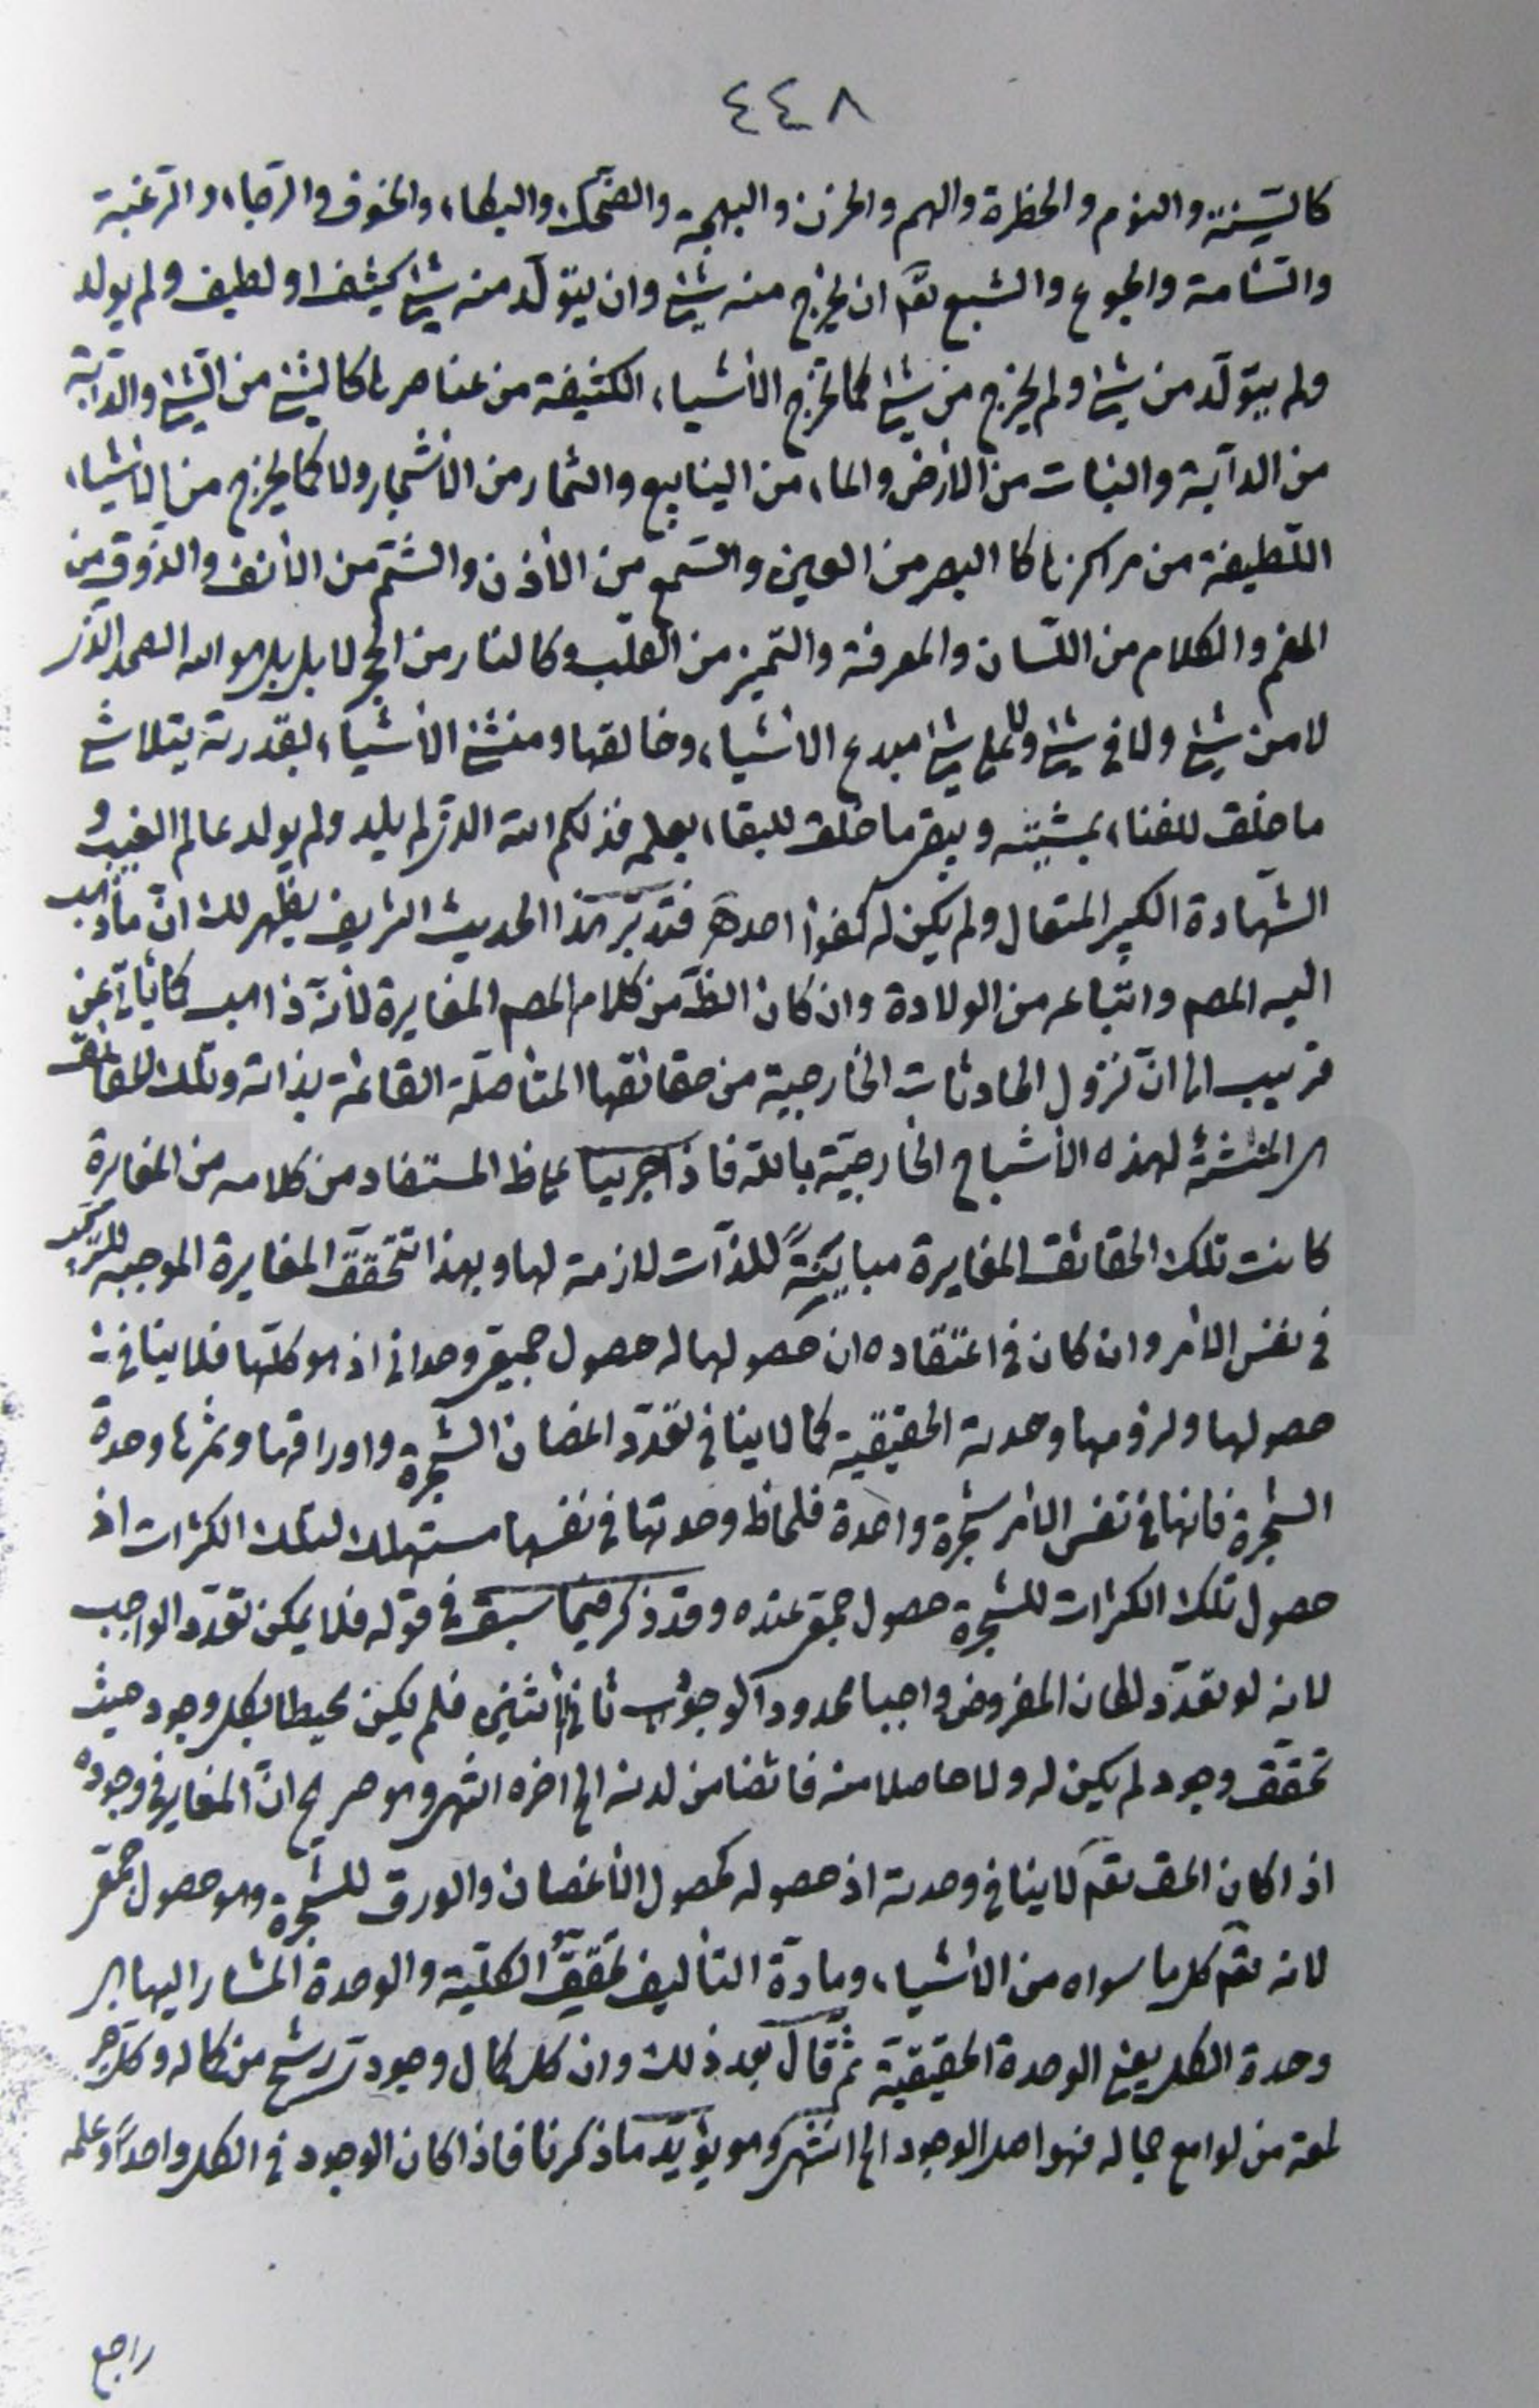 ٤٤٨
كالسِّنة والنوم والخطرة والهم والحزن والبهجة والضحك والبكاء والخوف والرجاء والرغبة
والسّامة والجوع والشبع تعٓ ان يخرج منه شئ وان يتولّد منه شئ كثيف او لطيف ولم يولد
ولم يتولّد من شئ ولم يخرج من شئ كما تخرج الأشياء الكثيفة من عناصرها كالشئ من الشئ والدابّة
من الدآبّة والنبات من الأرض والماء من الينابيع والثمار من الأشجار ولا كما يخرج من الأشياء
اللّطيفة من مراكزها كالبصر من العين والسّمع من الأذن والشّم من الأنف والذوق من
الفم والكلام من اللّسان والمعرفة والتميز من القلب وكالنار من الحجر لا بل هو الله الصمد الذى
لا من شئ ولا فى شئ ولا على شئ مبدع الأشياء وخالقها ومنشئ الأشياء بقدرته يتلاشى
ما خلق للفناء بمشيّته ويبقى ما خلق للبقاء بعلمه فذلكم الله الذى لم يلد ولم يولد عالم الغيب و
الشّهادة الكبير المتعال ولم يكن له كفوا احد فتدبّر هذا الحديث الشريف يظهر لك انّ ما ذهب
اليه المصم واتباعه من الولادة وان كان الظّ من كلام المصم المغايرة لأنّه ذاهب كما يأتى عن
قريب الى انّ نزول الحادثات الخارجية من حقائقها المتأصّلة القائمة بذاته وتلك الحقائق
هى المنشئة لهذه الأشباح الخارجيّة بالله فاذا جرينا على ظ المستفاد من كلامه من المغايرة
كانت تلك الحقائق المغايرة مباينةً للذات لازمة لها وبهذا تتحقق المغايرة الموجبة للتركيب
فى نفس الأمر وان كان فى اعتقاده ان حصولها له حصول جمعى وحدانى اذ هو كلّها فلا ينافى
حصولها ولزومها وحدته الحقيقية كما لا ينافى تعدّد اغصان الشجرة واوراقها وثمرها وحدة
الشجرة فانها فى نفس الأمر شجرة واحدة فلحاظ وحدتها فى نفسها مستهلك لتلك الكثرات اذ
حصول تلك الكثرات للشجرة حصول جمعى عنده وقد ذكر فيما سبق فى قوله فلا يمكن تعدّد الواجب
لانه لو تعدّد لكان المفروض واجبا محدود الوجوب ثانى اثنين فلم يكن محيطا بكل وجود حيث
تحقق وجود لم يكن له ولا حاصلا منه فائضا من لدنه الى اخره انتهى وهو صريح انّ المغاير فى وجوده
اذا كان الحق تعٓ لا ينافى وحدته اذ حصوله كحصول الأغصان والورق للشجرة وهو حصول جمعى
لانه تعٓ كل ما سواه من الأشياء ومادة التأليف تحقيق الكلّية والوحدة المشار اليها هى
وحدة الكل يعنى الوحدة الحقيقية ثم قال بعد ذلك وان كل كمال وجود ترشح من كماله وكل خير
لمعة من لوامع جماله فهو اصل الوجود الى انتهى وهو يؤيّد ما ذكرنا فاذا كان الوجود فى الكل واحداً وعلمه
راجع